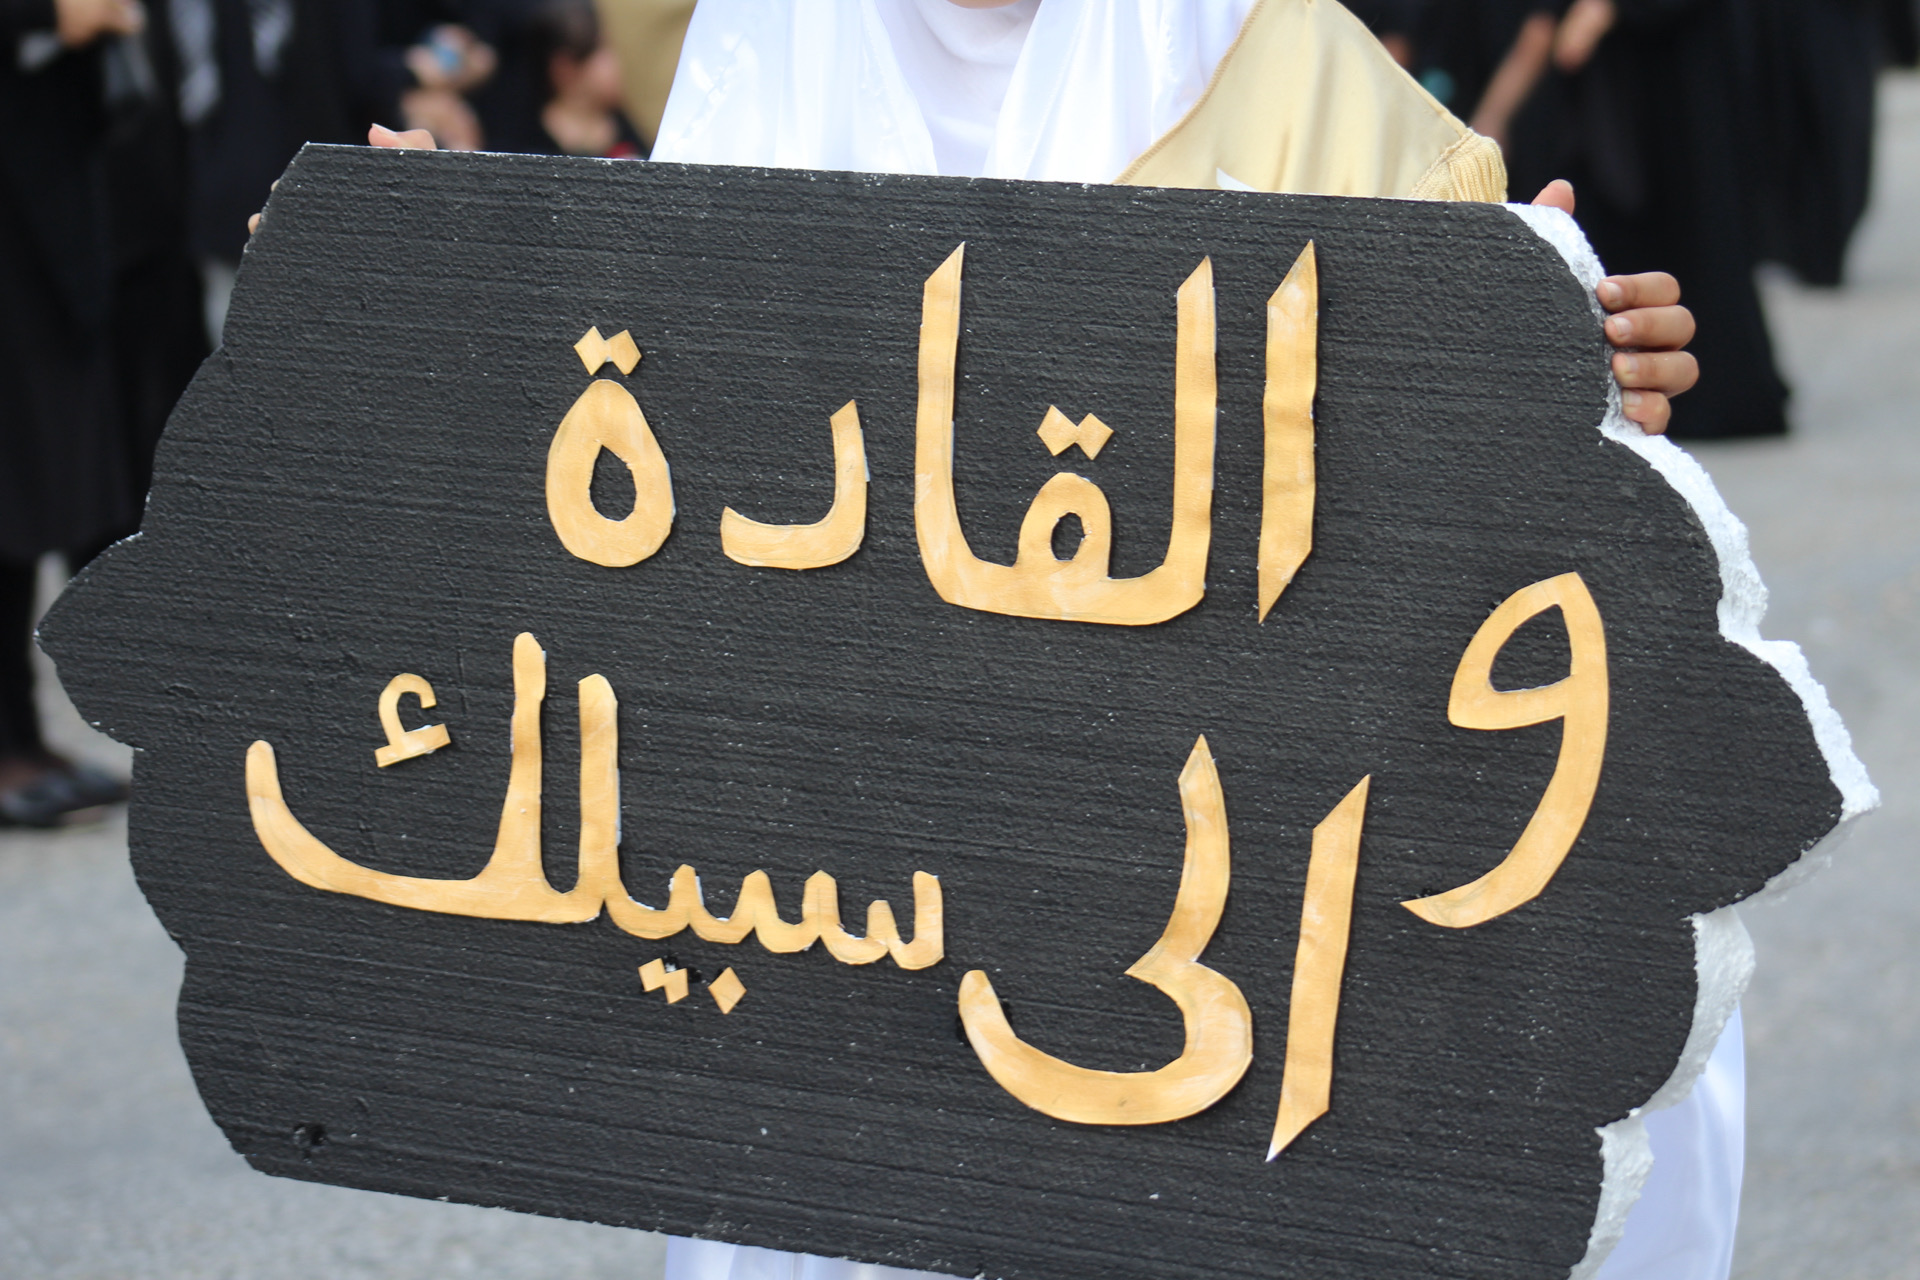 القادة
والى سبيلك